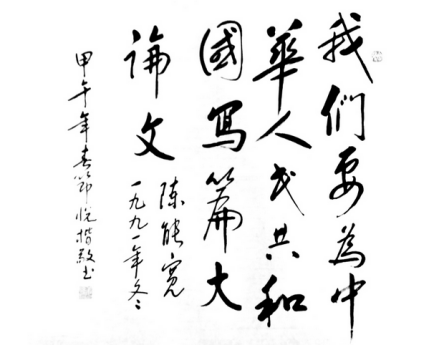 我們要為中
華人民共和
國寫篇大
論文
陳能寬
一九九一年冬
甲午年春節悦楷敬书